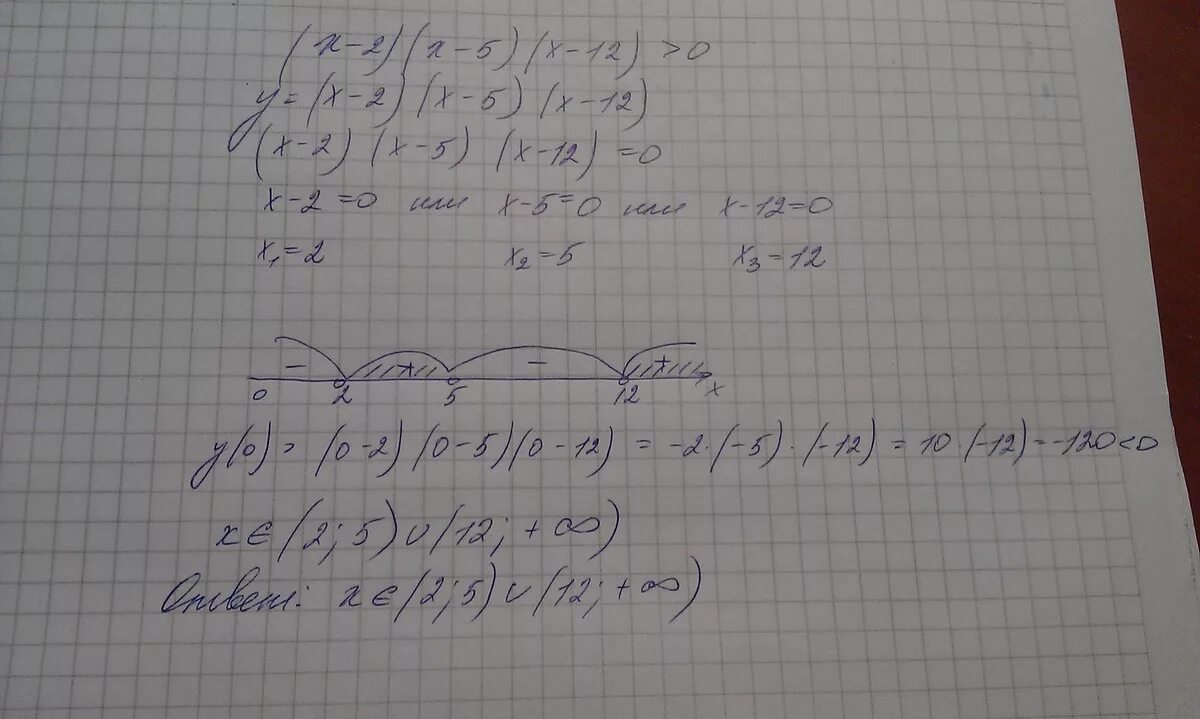 (x-2)(x-5)(x-12)>0
y=(x-2)(x-5)(x-12)
(x-2)(x-5)(x-12)=0
x-2=0 или x-5=0 или x-12=0
x₁=2 x₂=5 x₃=12
- + - +
0 2 5 12 x
y(0)=(0-2)(0-5)(0-12)=-2·(-5)·(-12)=10·(-12)=-120<0
x∈(2;5)∪(12;+∞)
Ответ: x∈(2;5)∪(12;+∞)